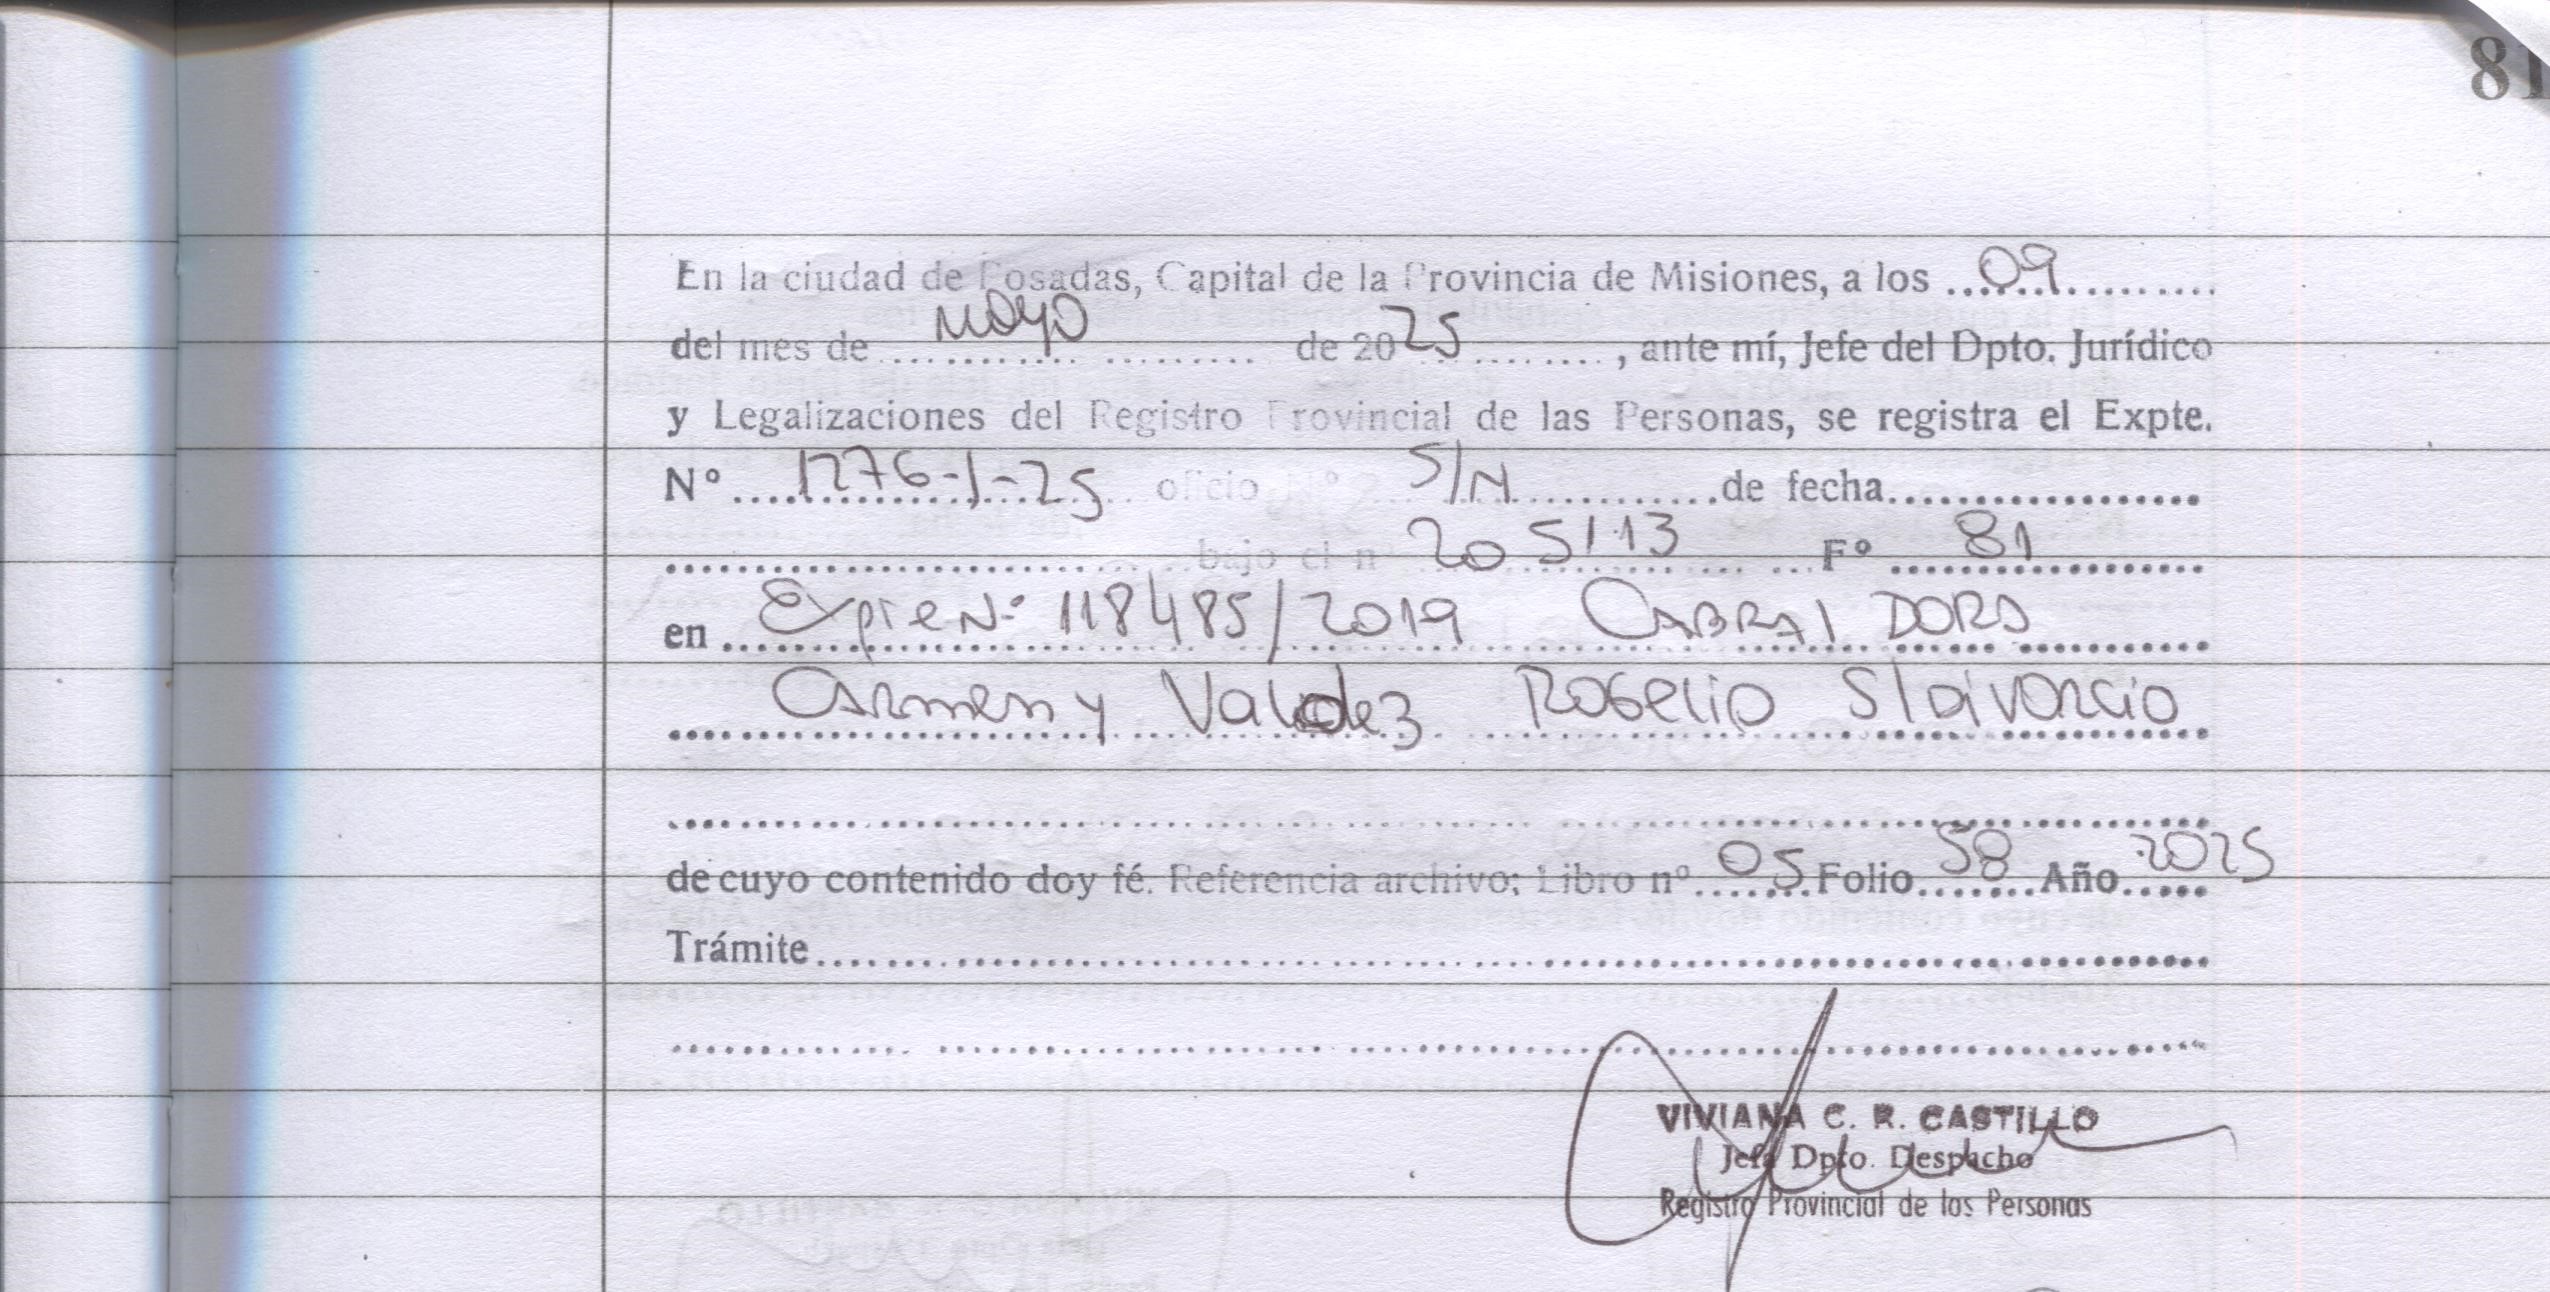 81
En la ciudad de Posadas, Capital de la Provincia de Misiones, a los ....09..........
del mes de ....mayo.... de 2025........, ante mí, Jefe del Dpto. Jurídico
y Legalizaciones del Registro Provincial de las Personas, se registra el Expte.
Nº....1276-1-25.... oficio Nº....S/N.............de fecha..................
....................................bajo el nº 205113 ....Fº ....81............
en ....Expte Nº 118485/2019 CABRAL DORA....
....Carmen y Valdez Rogelio S/divorcio....
....................................
de cuyo contenido doy fé. Referencia archivo; Libro nº....05....Folio....58....Año....2025
Trámite....................................
....................................
VIVIANA C. R. CASTILLO
Jefa Dpto. Despacho
Registro Provincial de las Personas